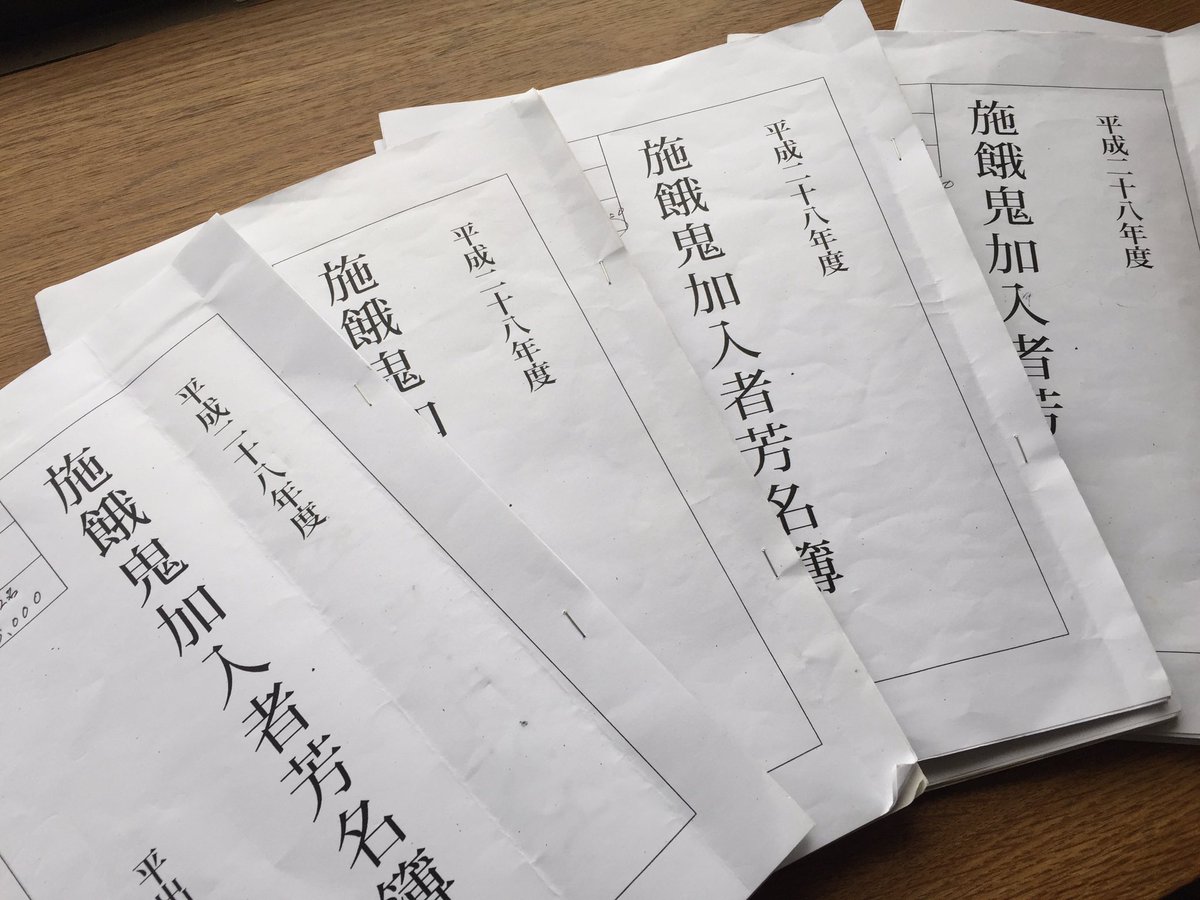 平成二十八年度
施餓鬼加入者芳
平成二十八年度
施餓鬼加入者芳名簿
平成二十八年度
施餓鬼
平成二十八年度
施餓鬼加入者芳名簿
平出
,000